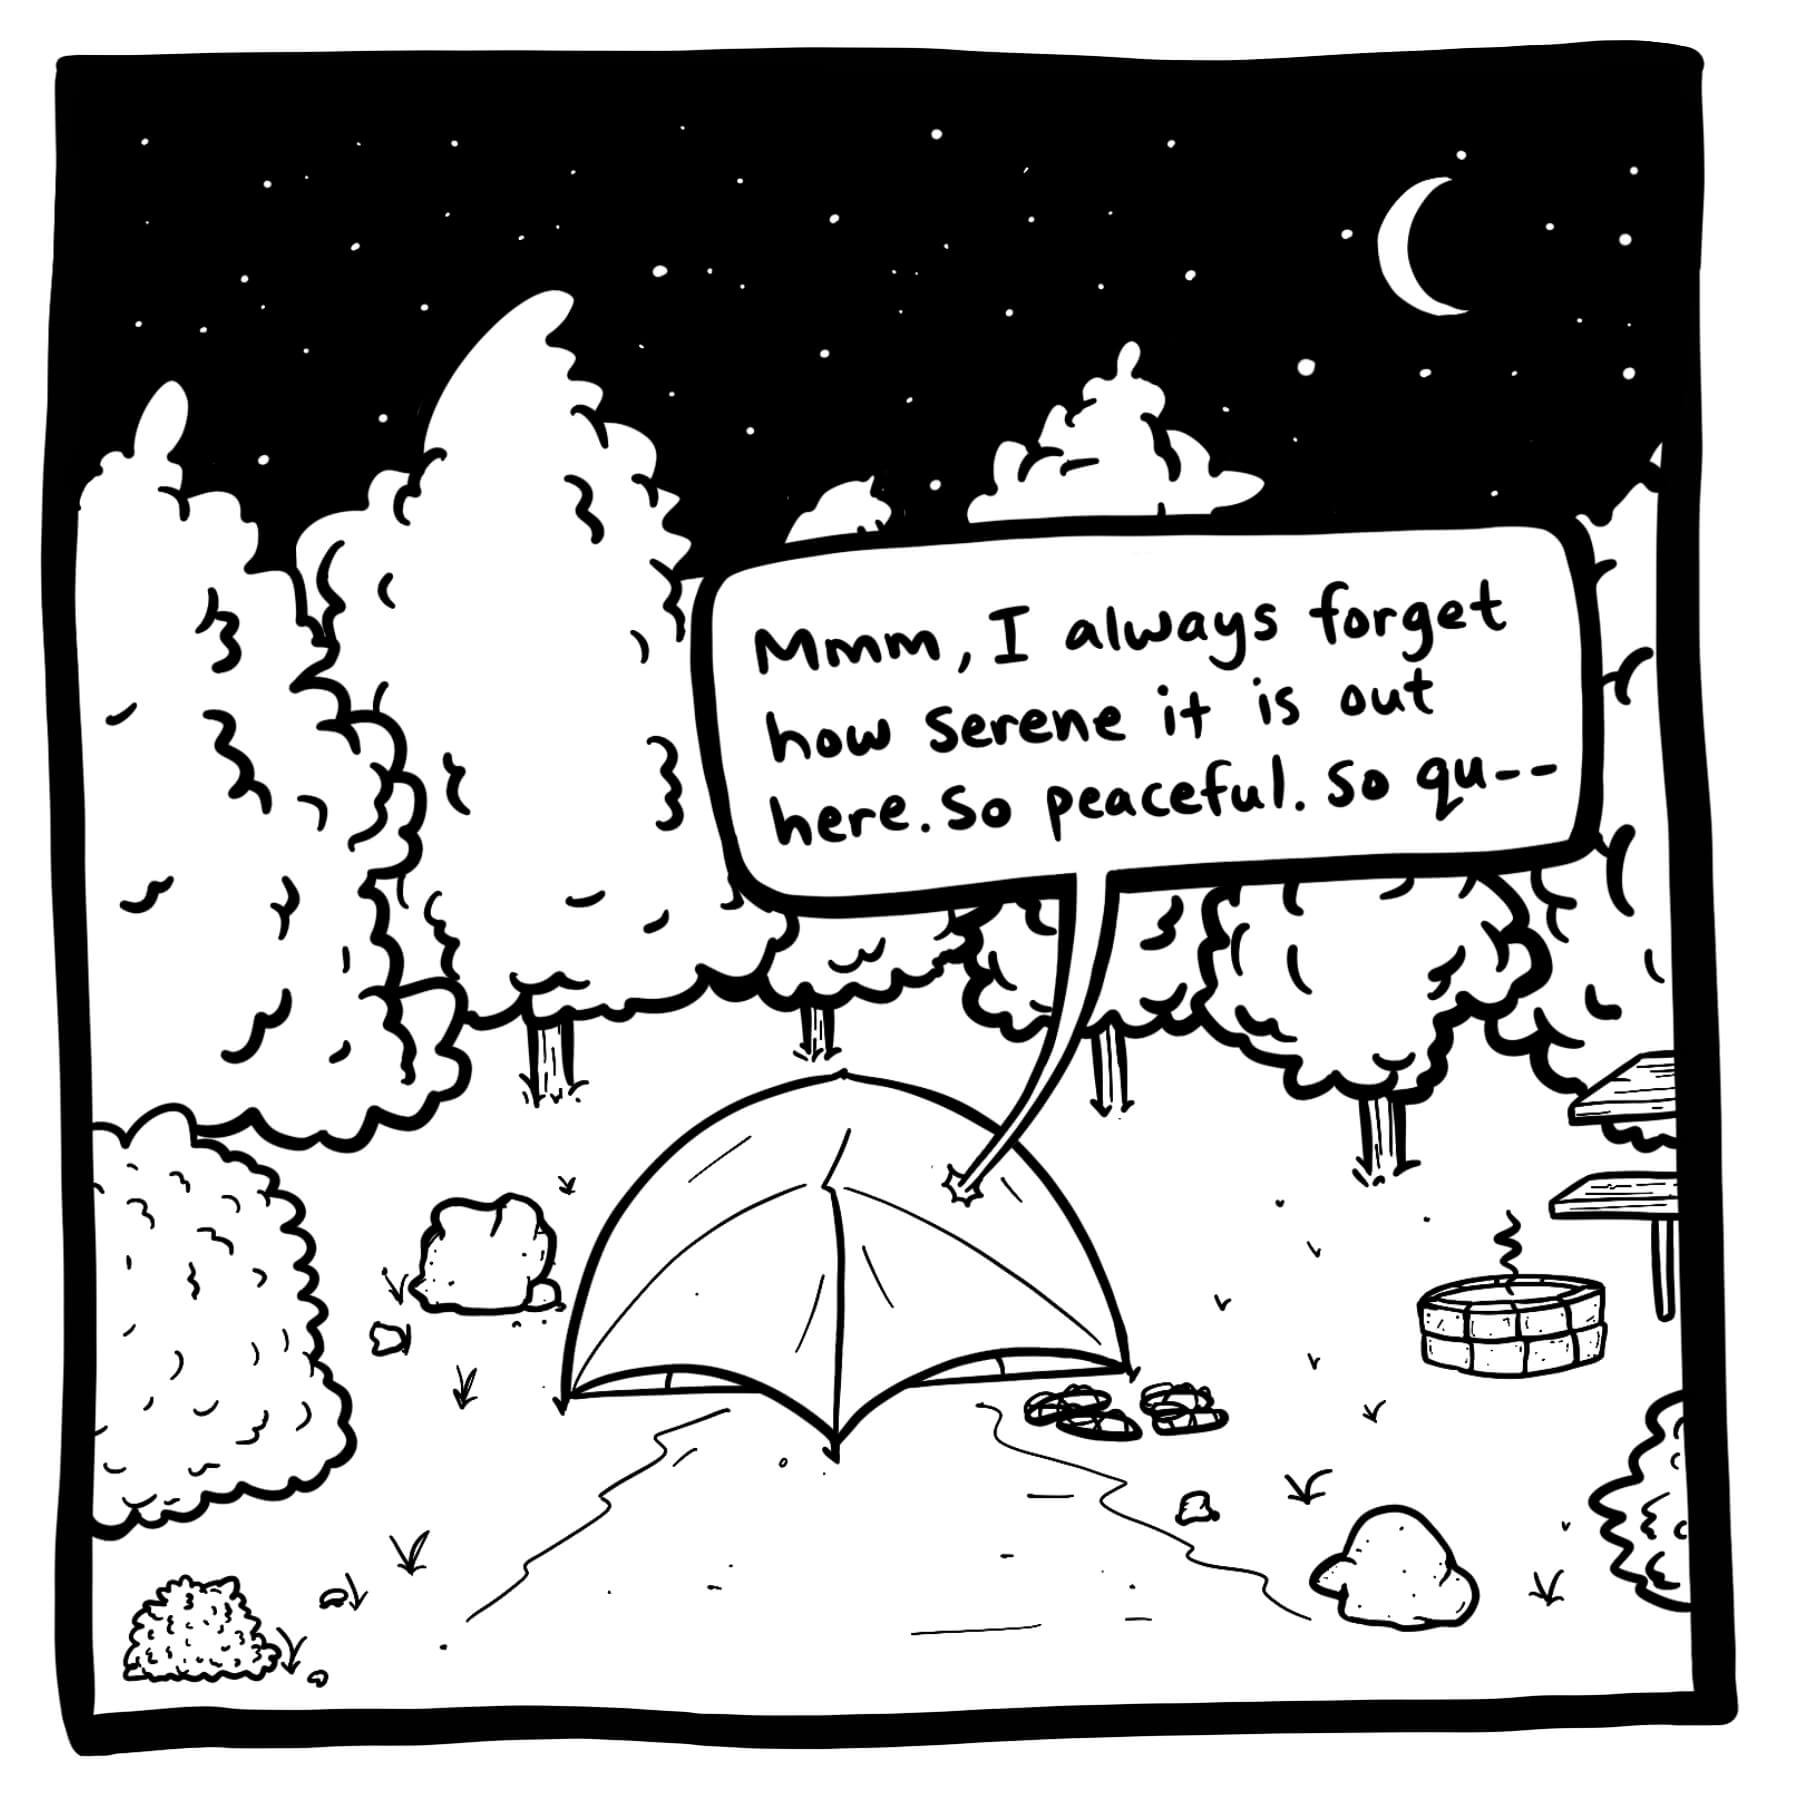 Mmm, I always forget
how serene it is out
here. So peaceful. So qu--